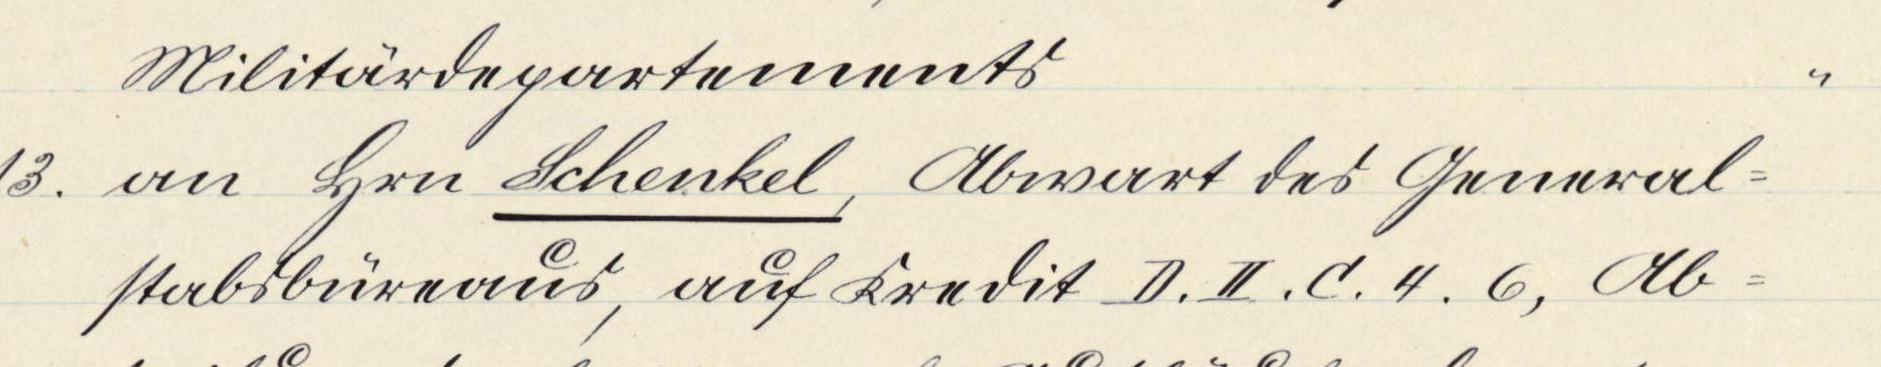 Militärdepartements "
13. an Hrn Schenkel, Abwart des General=
stabsbüreaus, auf Kredit D. II. C. 4. 6, Ab=